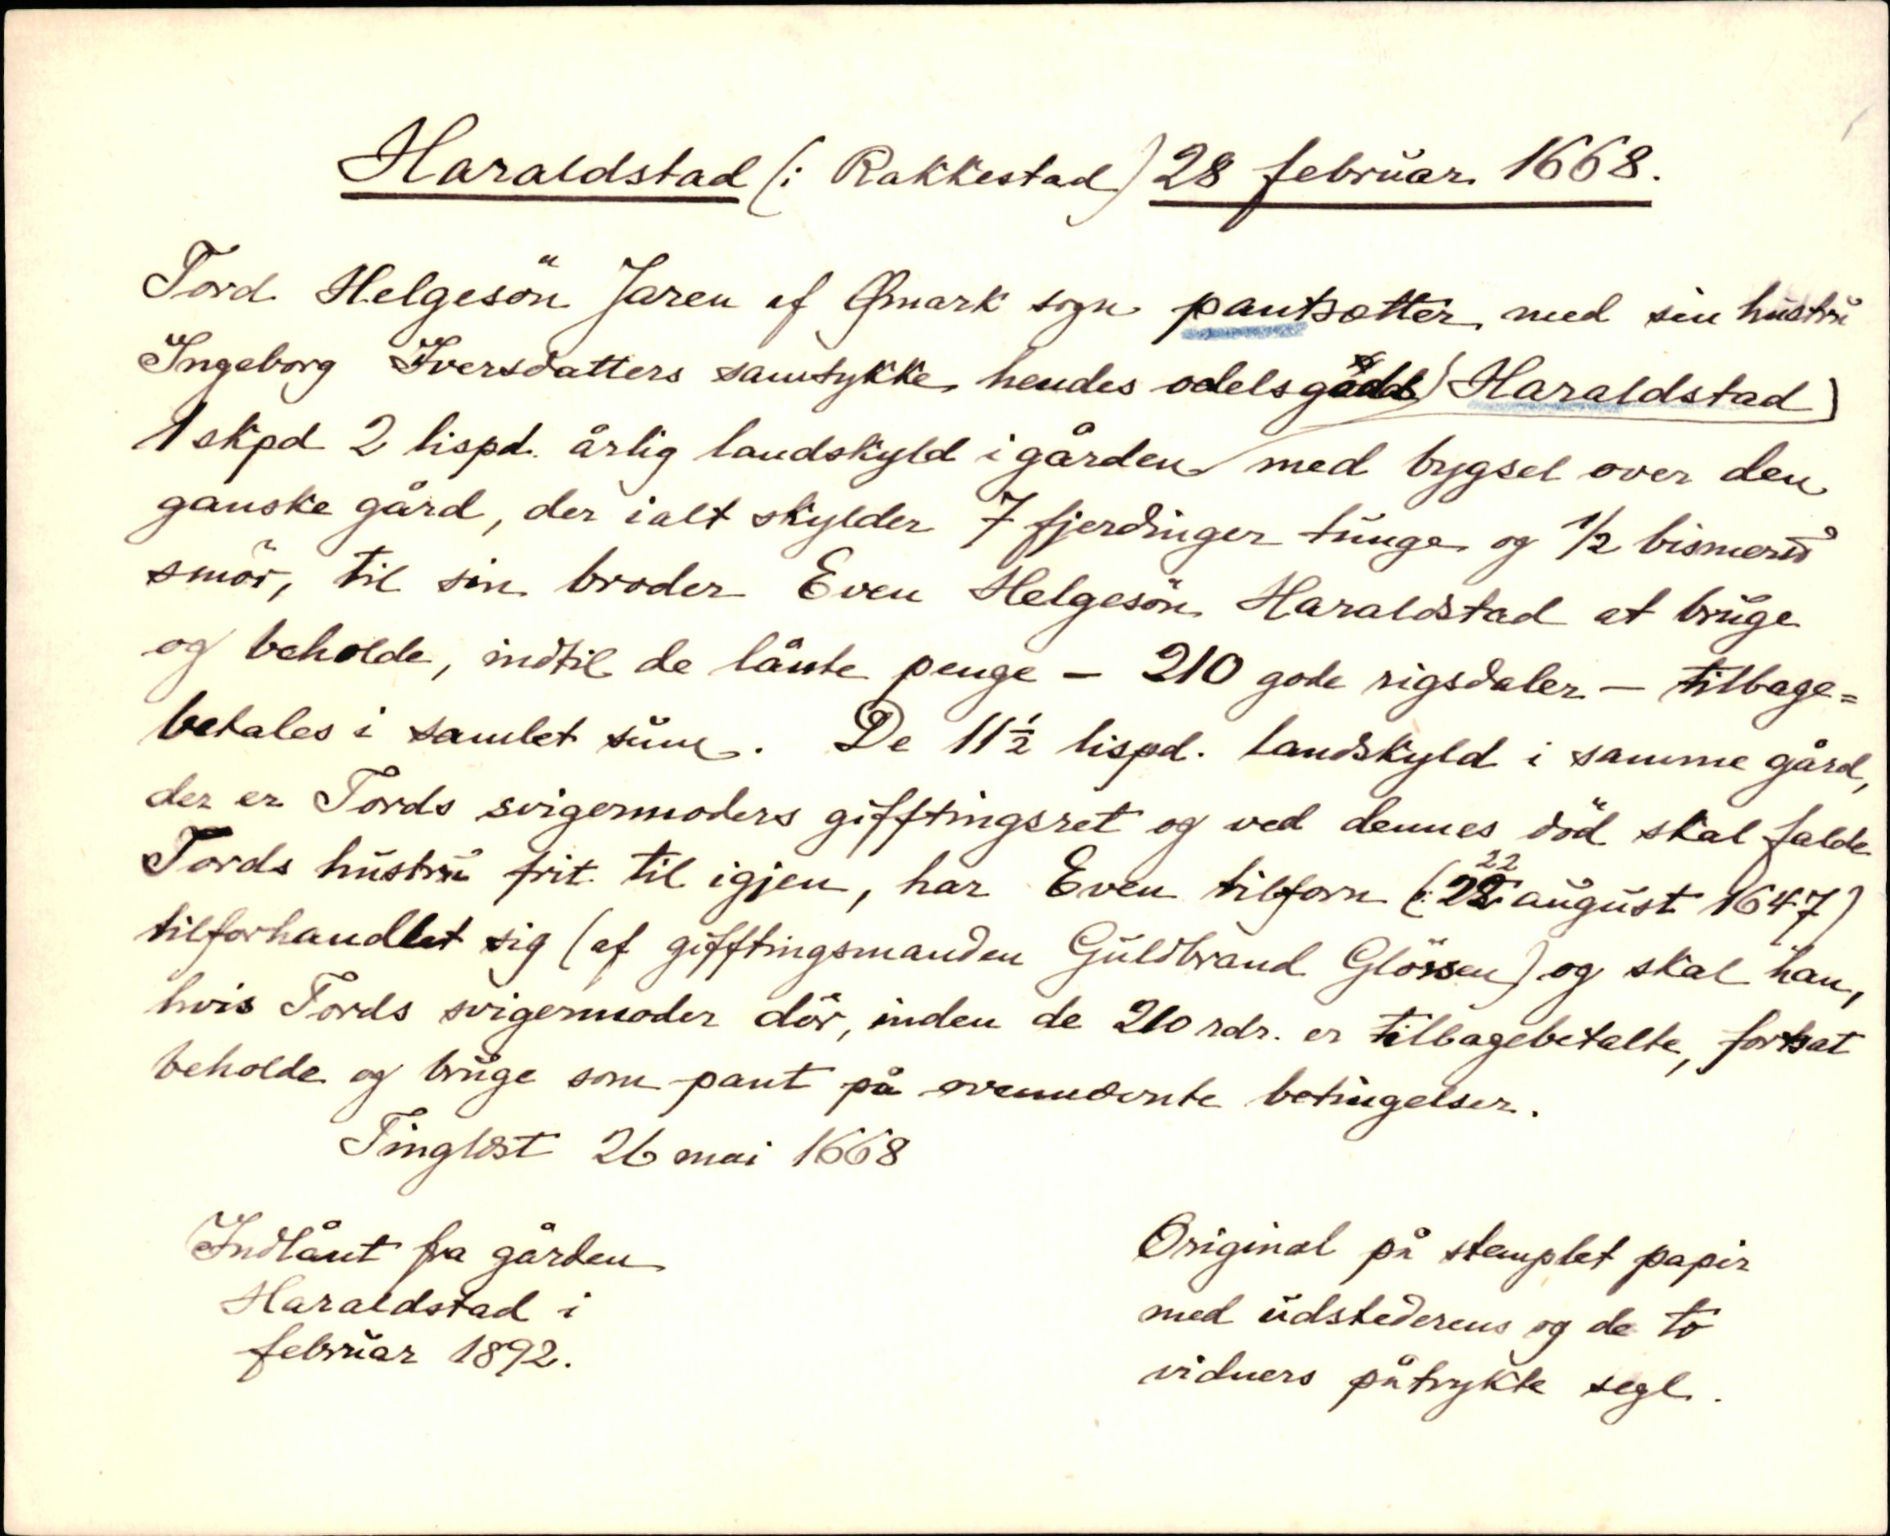 Haraldstad (i Rakkestad) 28 februar 1668.
Tord Helgesön Jaren af Ømark sogn pantsætter med sin hustru
Ingeborg Iversdatters samtykke hendes odelsgods (Haraldstad)
1 skpd 2 lispd. årlig landskyld i gården med bygsel over den
ganske gård, der ialt skylder 7 fjerdinger tunge og 1/2 bismerd
smör, til sin broder Even Helgesön Haraldstad at bruge
og beholde, indtil de lånte penge – 210 gode rigsdaler – tilbage=
betales i samlet sum. De 11½ lispd. landskyld i samme gård,
der er Tords svigermoders gifftingsret og ved dennes död skal falde
Tords hustru frit til igjen, har Even tilforn (22 august 1647)
tilforhandlet sig (af gifftingsmanden Guldbrand Glörsen) og skal han,
hvis Tords svigermoder dör, inden de 210 rdr. er tilbagebetalte, fortsat
beholde og bruge som pant på ovennævnte betingelser.
Tinglæst 26 mai 1668
Indlånt fra gården
Haraldstad i
februar 1892.
Original på stemplet papir
med udstederens og de to
vidners påtrykte segl.